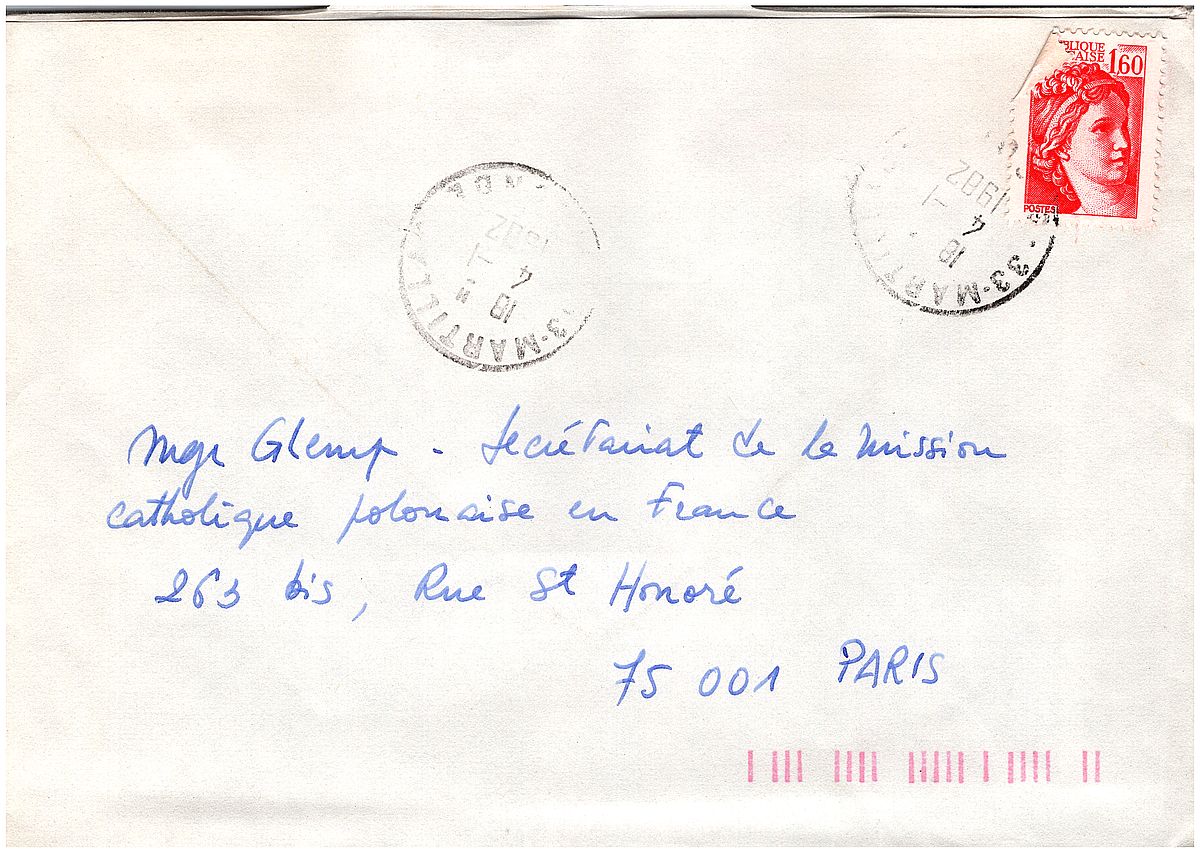 BLIQUE
CAISE 1,60
POSTES
33-MARTILLA
18 H
4 -1
1982
33-MARTILLA NDE
18 H
4 -1
Mgr Glemp - Secrétariat de la Mission
catholique polonaise en France
263 bis, Rue St Honoré
75 001 PARIS